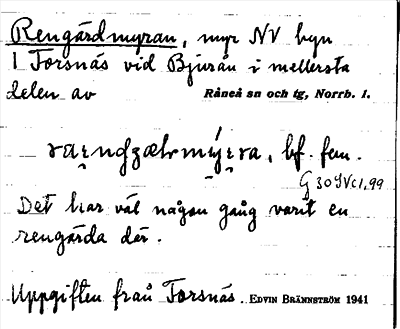 Rengärdmyran, myr NV byn
1 Forsnäs vid Bjurån i mellersta
delen av Råneå sn och tg, Norrb. l.
bf. fem.
Det har väl någon gång varit en
rengärda där.
Uppgiften från Forsnäs. EDVIN BRÄNNSTRÖM 1941